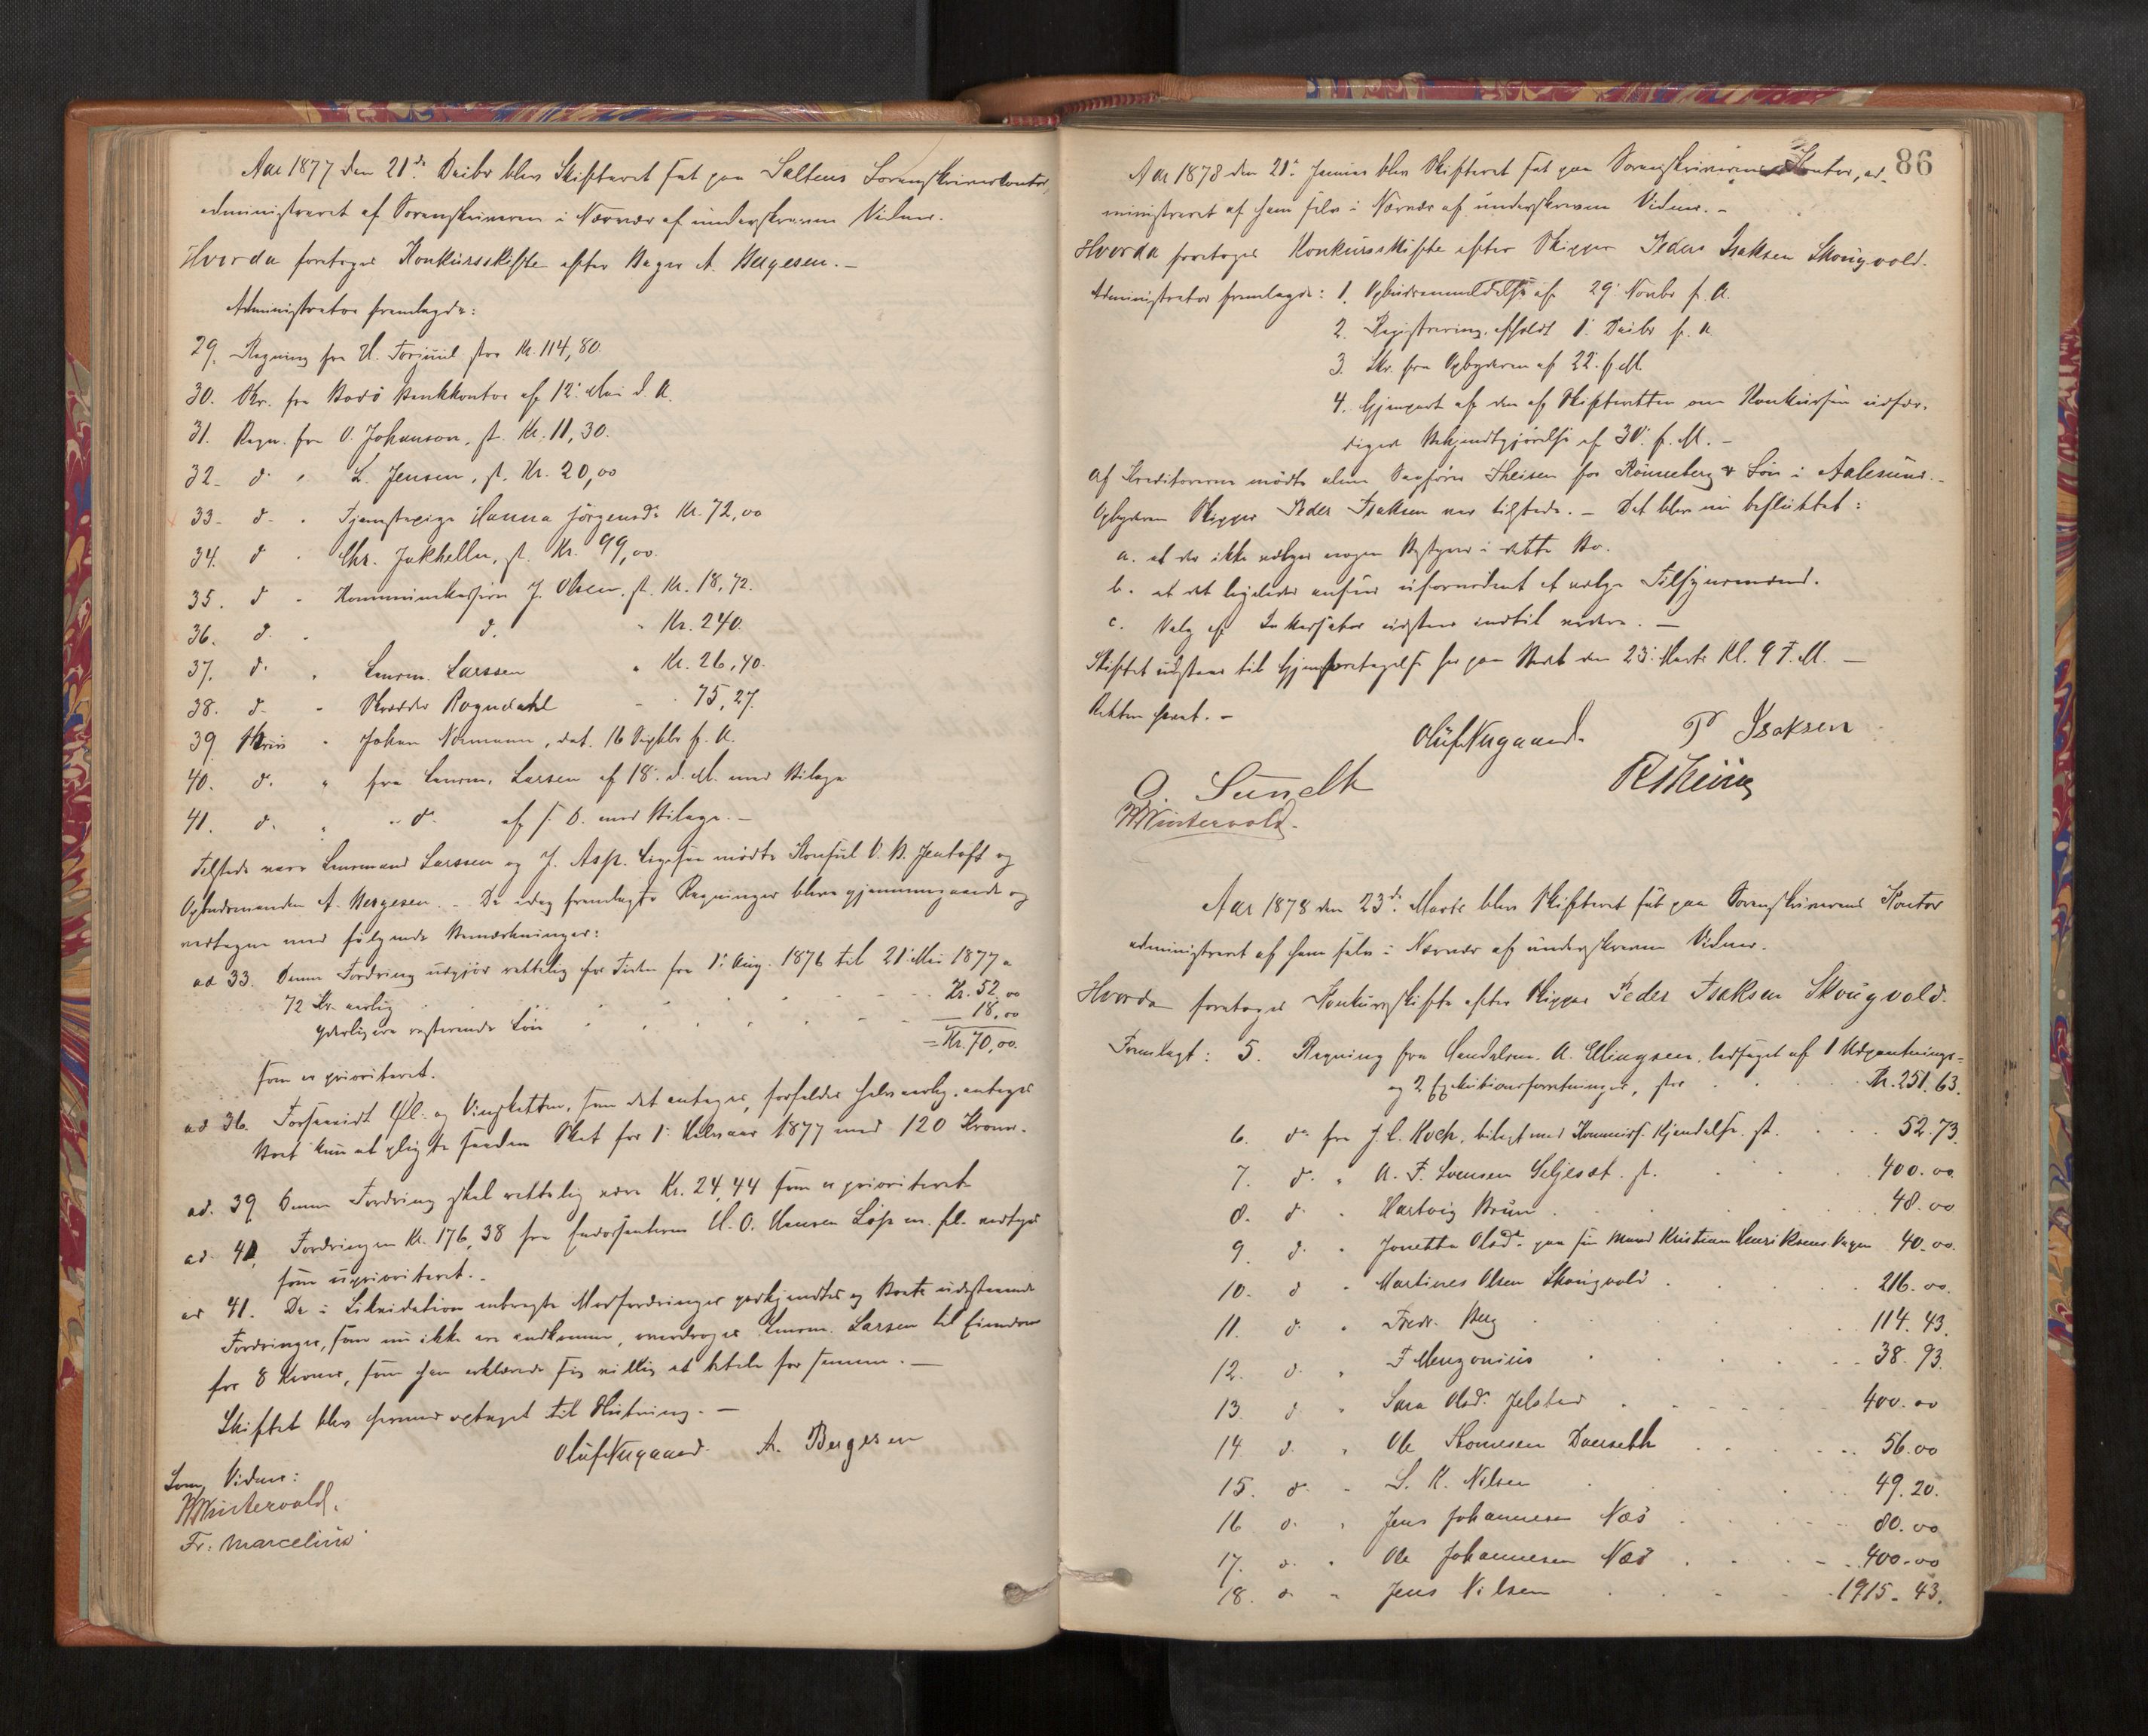 Aar 1877 den 21de Decbr blev Skifteret sat paa Saltens Sorenskriverkontor,
administreret af Sorenskriveren i Nærvær af underskrevne Vidner.
Hvorda foretoges Konkursskifte efter Bager A. Bergesen. –
Administrator fremlagde:
29. Regning fra H. Torjuul stor Kr. 114,80.
30. Skr. fra Bodö Bankkontor af 12. Mai d. A.
31. Regn. fra O. Johanson, st. Kr. 11,30.
32. do " L. Jensen, st. Kr. 20,00
33. d. " Tjenestepige Hanna Jörgensdr Kr. 72,00
34. d " Chr. Jakhelln, st. Kr. 99,00.
35. d " J. Olsen, st. Kr. 18,72.
36. d. " d. " Kr. 240.
37. d. " Lensm. Larssen " Kr. 26,40.
38. d. " Skrædder Rogndahl " 75,27.
39. Skriv " Johan Normann, dat. 16 Septbr f. A.
40. d. " fra Lensm. Larsen af 18. d. M. med Bilage
41. d. " " do af s. D. med Bilage. –
Tilstede vare Lensmand Larssen og J. Asp. Ligesaa mödte Konsul O. B. Jentoft og
Opbudsmanden A. Bergesen. – De idag fremlagte Regninger bleve gjennemgaaede og
vedtagne med fölgende Bemærkninger:
ad 33. Denne Fordring udgjör rettelig for Tiden fra 1. Aug. 1876 til 21 Mai 1877 a
72 Kr. aarlig Kr. 52,00
yderligere resterende Lön 18,00
= Kr. 70,00.
som er prioriteret.
ad 36. Forsaavidt Öl- og Vinskatten, som det antages, forfalder halvaarlig, antages
Boet kun at pligte saadan Skat for 1. Halvaar 1877 med 120 Kroner.
ad. 39 Denne Fordring skal rettelig være Kr. 24,44 som er prioriteret
ad. 40, Fordringen Kr. 176,38 fra H. O. Hansen m. fl. vedtages
som uprioriteret. –
ad 41. De i Likvidation anbragte Modfordringer godkjendtes og Boets udestaaende
Fordringer, som nu ikke ere indkomne, overdroges Lensm. Larsen til Eiendom
for 8 Kroner, som han erklærede sig villig at betale for samme. –
Skiftet blev hermed optaget til Slutning. –
Oluf Nygaard. A. Bergesen
Som Vidner:
W Wintervold.
Fr. Marcelius
86
Aar 1878 den 21. Januar blev Skifteret sat paa Sorenskriverens Kontor, ad-
ministreret af ham selv i Nærvær af underskrevne Vidner. –
Hvorda foretoges Konkursskifte efter Skipper Peder Isaksen Skougvold.
Administrator fremlagde: 1. Opbudsanmeldelse af 29. Novbr f. A.
2. Registrering, afholdt 1. Decbr f. A
3. Skr. fra Opbyderen af 22. f. M.
4. Gjenpart af den af Skifteretten om Konkursen udfær-
digede Bekjendtgjörelse af 30. f. M. –
Af Kreditorerne mödte alene Sagförer Theisen for Rönneberg & Sön i Aalesund. –
Opbyderen Skipper Peder Isaksen var tilstede. – Det blev nu besluttet:
a. at der ikke vælges nogen Bestyrer i dette Bo.
b. at det ligeledes ansees ufornödent at vælge Tilsynsmænd.
c. Valg af Inkassator udstaar indtil videre. –
Skiftet udstaar til Gjenforetagelse her paa Stedet den 23. Marts Kl. 9 F. M. –
Retten hævet. –
Oluf Nygaard. P Isaksen
O. Sundth R Theisen
W Wintervold.
Aar 1878 den 23de Marts blev Skifteret sat paa Sorenskriverens Kontor
administreret af ham selv i Nærvær af underskrevne Vidner.
Hvorda foretoges Konkursskifte efter Skipper Peder Isaksen Skougvold.
Fremlagt: 5. Regning fra Handelsm. A. Ellingsen, ledsaget af 1 Udpantnings-
og 2 Exekutionsforretninger, stor Kr. 251.63.
6. do fra J. C. Koch, bilagt med Kommiss. Kjendelse. st. 52.73.
7. d. " A. F. Svensen Seljesæt. st. 400.00
8. d " Hartvig Bruun 48.00
9. d. " Jonetta Olsdr paa sin Mand Kristian Henriksens Vegne 40.00.
10. d " Martines Olsen Skougvold 216.00.
11. d. " Fredr. Berg 114.43.
12. d. " F Menzonius 38.93.
13. d " Sara Olsdr. Jelstad 400.00
14. d. " Ole Thomesen Daaseth 56.00
15. d. " S. K. Nilsen 49.20.
16. d. " Jens Johannesen Næs 80.00
17. d. " Ole Johannesen Næs 400.00
18. d. " Jens Nilsen 1915.43.